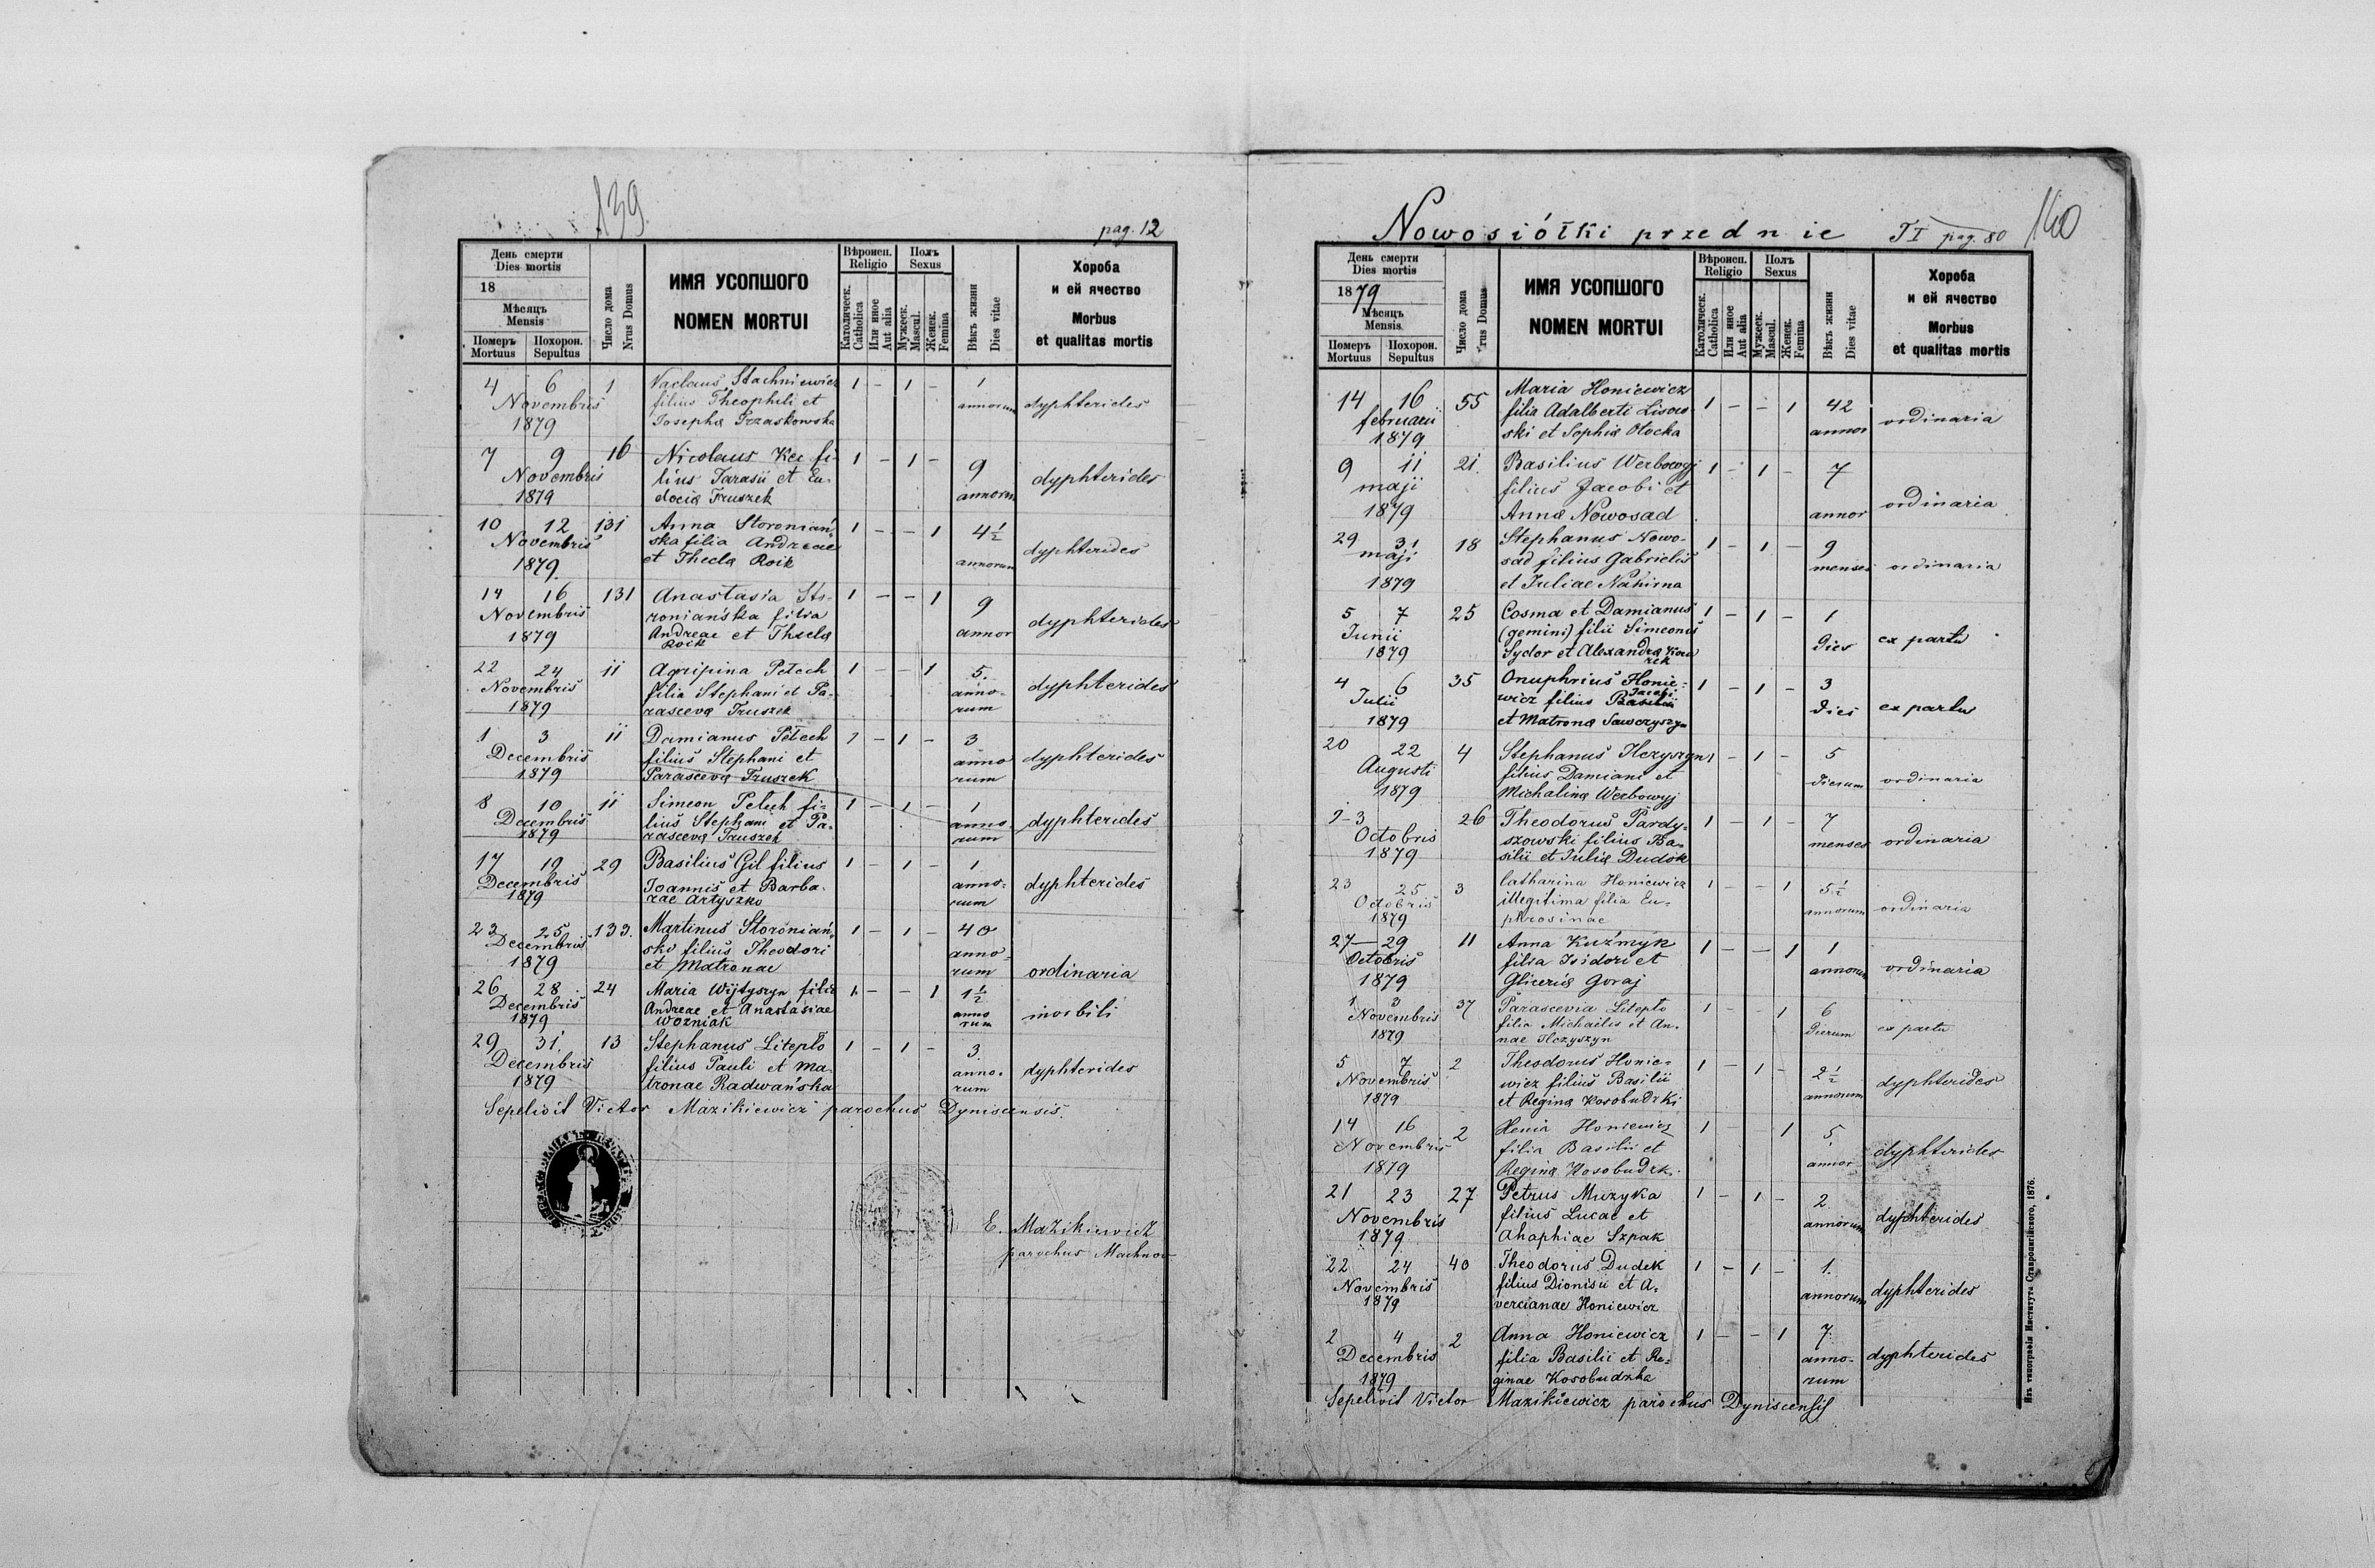 139
pag. 12
День смерти
Dies mortis
18
Мѣсяцъ
Mensis
Померъ
Mortuus
Похорон.
Sepultus
Число дома
Nrus Domus
ИМЯ УСОПШОГО
NOMEN MORTUI
Вѣроисп.
Religio
Католическ.
Catholica
Или иное
Aut alia
Полъ
Sexus
Мужеск.
Mascul.
Женск.
Femina
Вѣкъ жизни
Dies vitae
Хороба
и ей ячество
Morbus
et qualitas mortis
4 6 1 Stachniewicz 1 - 1 - 1
Novembris filius Theophili et annorum dyphterides
1879 Josepha
7 9 16 Nicolaus Kec fi- 1 - 1 - 9
Novembris lius Tarasii et Eu- dyphterides
1879 docia Truszek annorum
10 12 131 Anna Storoniań- 1 - - 1 4½
Novembris ska filia Andreae dyphterides
1879 et Thecla Roik annorum
14 16 131 Anastasia Sto- 1 - - 1 9
Novembris roniańska filia dyphterides
1879 Andreae et Thecla annor
Roik
22 24 11 Agripina Petech 1 - - 1 5.
Novembris filia Stephani et Pa- anno- dyphterides
1879 rasceva Truszek rum
1 3 11 Damianus Petech 1 - 1 - 3
Decembris filius Stephani et anno dyphterides
1879 Parasceva Truszek rum
8 10 11 Simeon Petech fi- 1 - 1 - 1
Decembris lius Stephani et Pa- anno- dyphterides
1879 rasceva Truszek rum
17 19 29 Basilius Gil filius 1 - 1 - 1
Decembris Joannis et Barba- anno- dyphterides
1879 rae Artyszko rum
23 25 133. Martinus Storoniań- 1 - 1 - 40
Decembris ski filius Theodori anno-
1879 et Matronae rum ordinaria
26 28 24 Maria Wijtyszyn filia 1 - - 1 1½
Decembris Andreae et Anastasiae anno morbili
1879 Wozniak rum
29 31. 13 Stephanus Litepło 1 - 1 - 3.
Decembris filius Pauli et Ma- anno- dyphterides
1879 tronae Radwańska rum
Sepelivit Victor Mazikiewicz parochus Dyniscensis.
E. Mazikiewicz
parochus Machnow
Nowosiółki przednie T I pag. 80
140
День смерти
Dies mortis
1879
Мѣсяцъ
Mensis
Померъ
Mortuus
Похорон.
Sepultus
Число дома
rus Domus
ИМЯ УСОПШОГО
NOMEN MORTUI
Вѣроисп.
Religio
Католическ.
Catholica
Или иное
Aut alia
Полъ
Sexus
Мужеск.
Mascul.
Женск.
Femina
Вѣкъ жизни
Dies vitae
Хороба
и ей ячество
Morbus
et qualitas mortis
14 16 55 Maria Honiewicz 1 - - 1 42
februarii filia Adalberti Lisow ordinaria
1879 ski et Sophia Otocka annor
9 11 21. Basilius Werbowyj 1 - 1 - 7
maji filius Jacobi et ordinaria
1879 Anna Nowosad annor
29 31 18 Stephanus Nowo- 1 - 1 - 9
maji sad filius Gabrielis menses ordinaria
1879 et Juliae Nahirna
5 7 25 Cosma et Damianus 1 - 1 - 1
Junii (gemini) filii Simeonis ex partu
1879 Sydor et Alexandra dies
4 6 35 Onuphrius Honie- 1 - 1 - 3
Julii wicz filius Basilii Jacobi dies ex partu
1879 et Matrona Sawczyszyn
20 22 4 Stephanus Ilczyszyn 1 - 1 - 5
Augusti filius Damiani et dierum ordinaria
1879 Michalina Werbowyj
2-3 26 Theodorus Pardy- 1 - 1 - 7
Octobris szowski filius Ba- menses ordinaria
1879 silii et Julia Dudok
23 25 3 Catharina Honiewicz 1 - - 1 5½
Octobris illegitima filia Eu- annorum ordinaria
1879 phrosinae
27 - 29 11 Anna Kuźmyk 1 - - 1 1
Octobris filia Isidori et annorum ordinaria
1879 Gliceria Goraj
1 3 37 Parascevia Litepło 1 - - 1 6
Novembris filia Michaelis et An- dierum ex partu
1879 nae Ilczyszyn
5 7 2 Theodorus Honie- 1 - 1 - 2½
Novembris wicz filius Basilii dyphterides
1879 et Regina Kosobudzki annorum
14 16 2 Honiewicz 1 - 1 5
Novembris filia Basilii et dyphterides
1879 Regina Kosobudzk. annor
21 23 27 Petrus Muzyka 1 - 1 - 2
Novembris filius Lucae et annorum dyphterides
1879 Ahaphiae Szpak
22 24 40 Theodorus Dudek 1 - 1 - 1.
Novembris filius Dionisii et A- annorum dyphterides
1879 vercianae Honiewicz
2 4 2 Anna Honiewicz 1 - - 1 7.
Decembris filia Basilii et Re- anno- dyphterides
1879 ginae Kosobudzka rum
Sepelivit Victor Mazikiewicz parochus Dyniscensis
Изъ типографіи Института Ставропигійского, 1876.